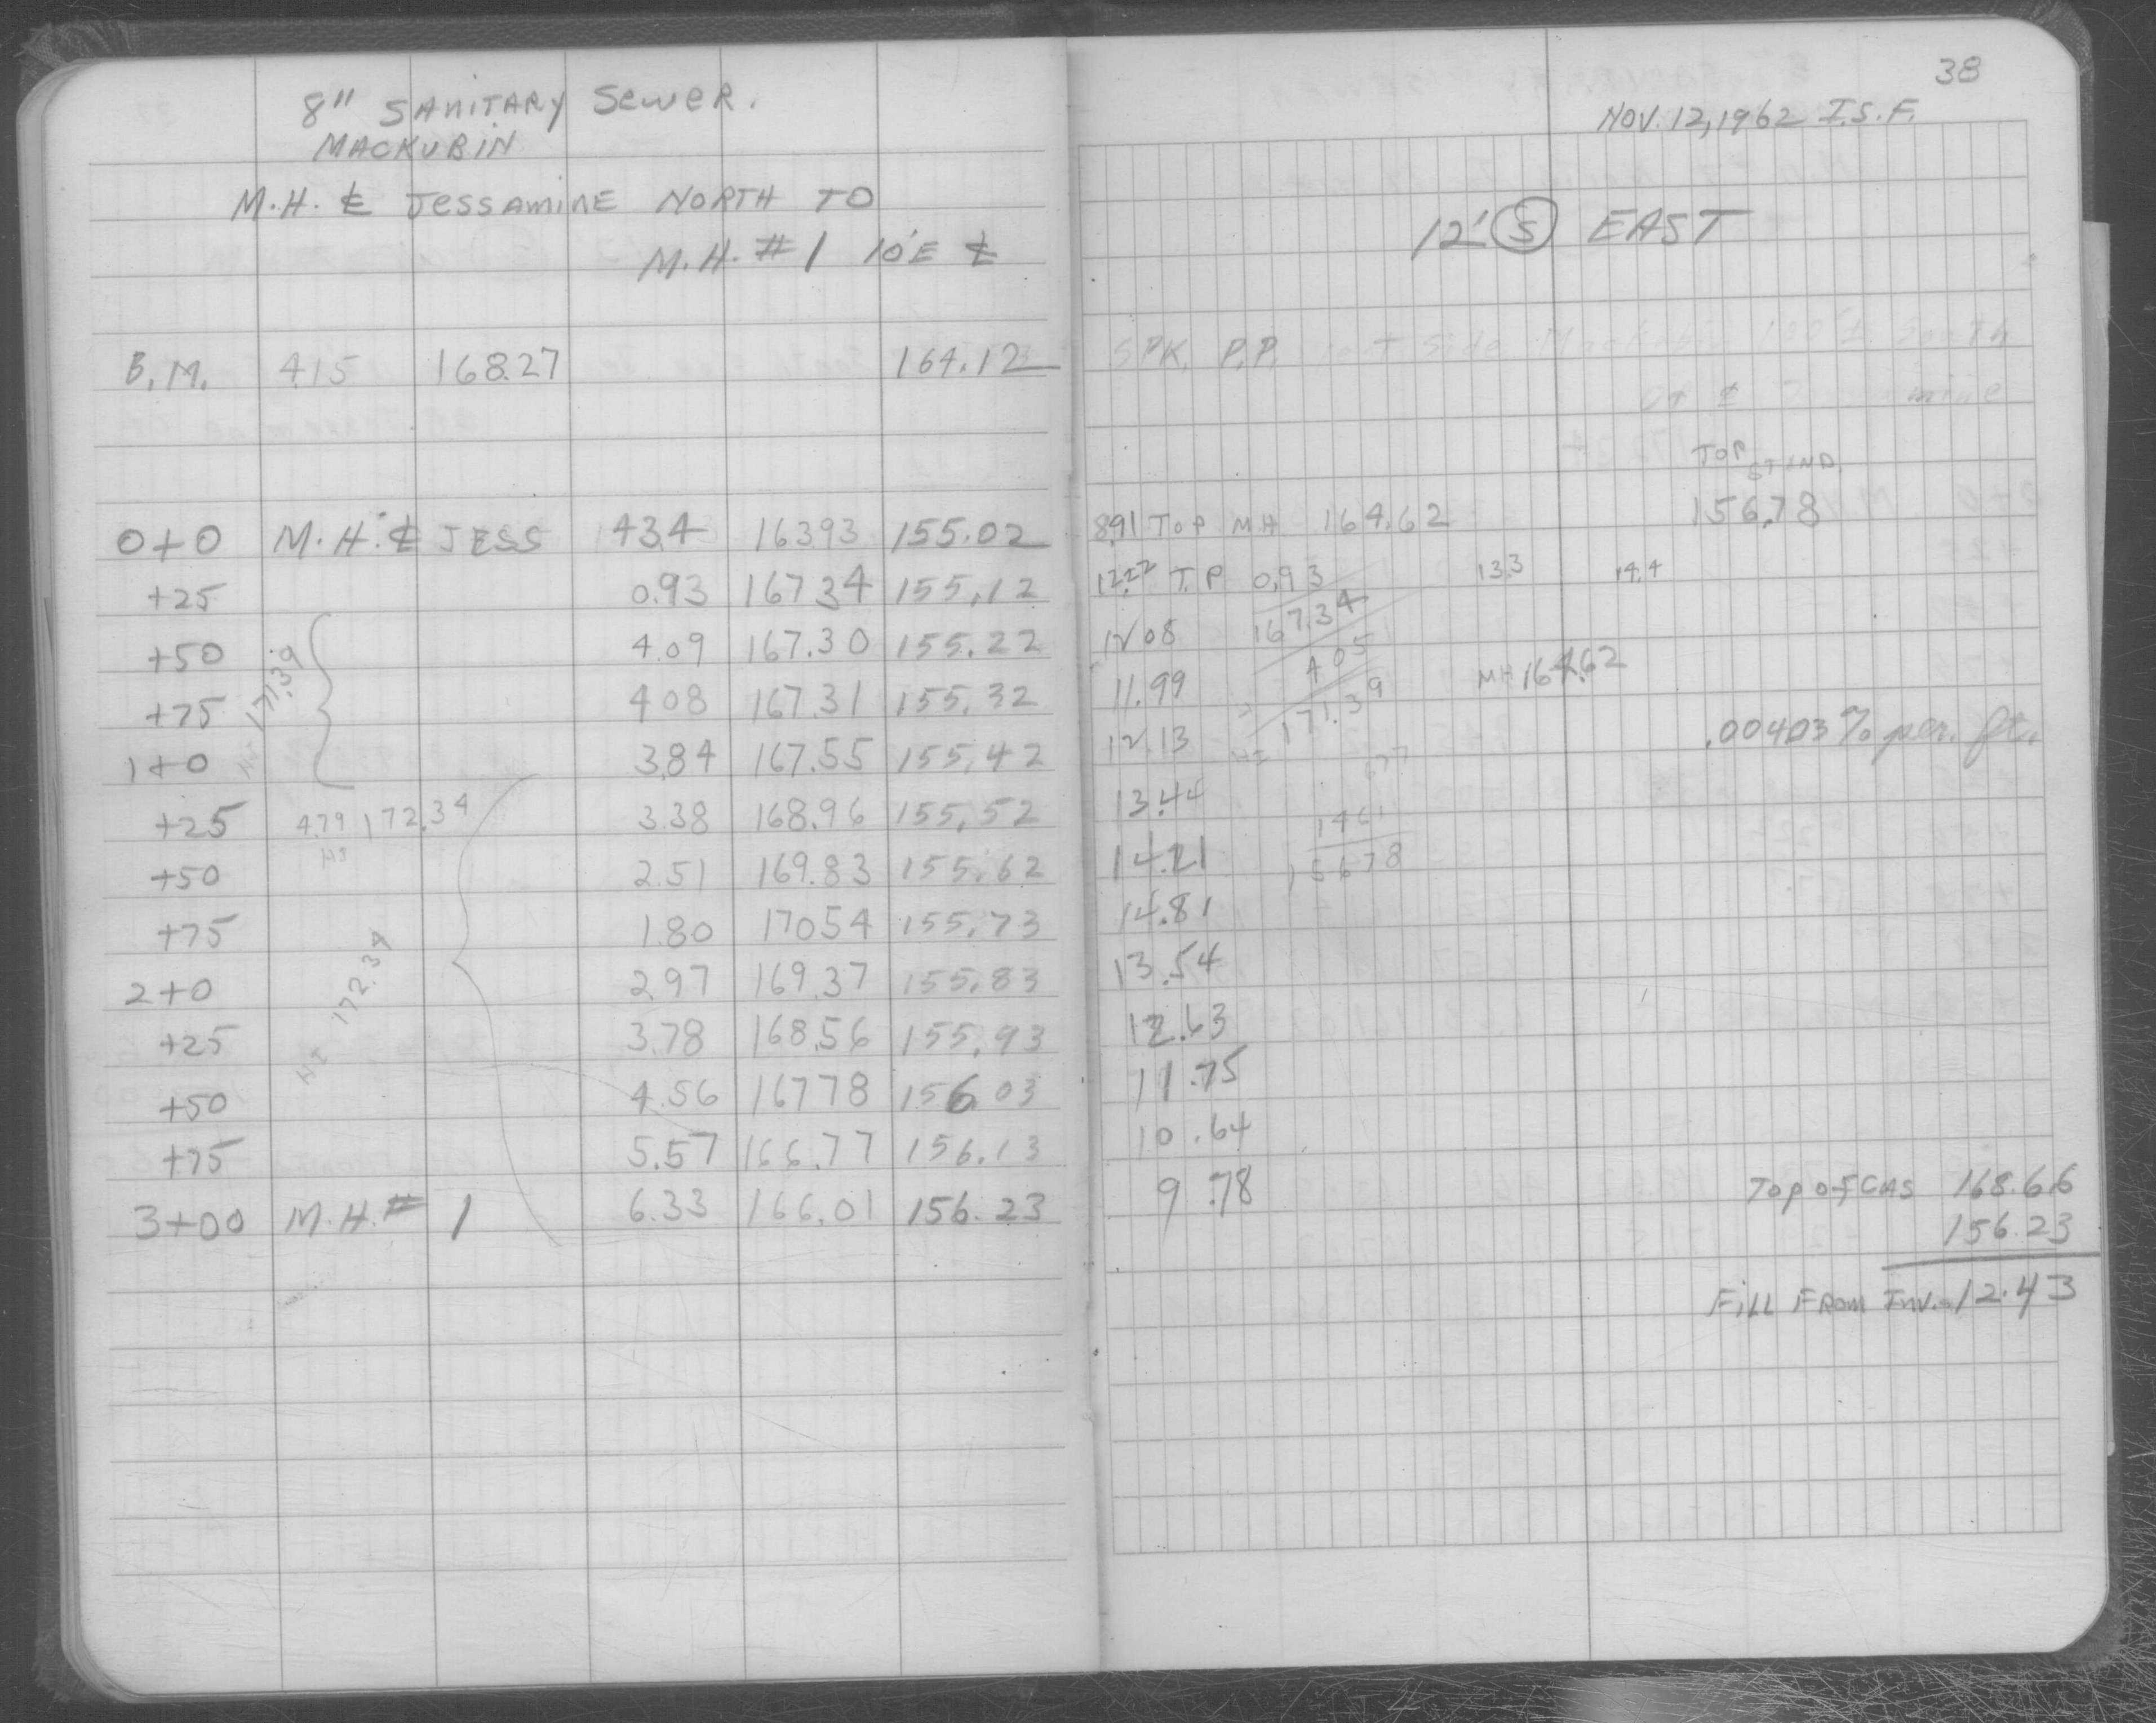 8" SANITARY SEWER.
MACKUBIN
M.H. ℄ JESSAMINE NORTH TO
M.H. # 1 10'E ℄
B.M. 4.15 168.27 164.12
0+0 M.H. ℄ JESS 4.34 163.93 155.02
+25 0.93 167.34 155.12
+50 4.09 167.30 155.22
+75 4.08 167.31 155.32
1+0 3.84 167.55 155.42
HI 171.39
+25 4.79 172.34 3.38 168.96 155.52
+50 2.51 169.83 155.62
+75 1.80 170.54 155.73
2+0 2.97 169.37 155.83
+25 3.78 168.56 155.93
HI 172.34
+50 4.56 167.78 156.03
+75 5.57 166.77 156.13
3+00 M.H. # 1 6.33 166.01 156.23
38
NOV. 12, 1962 I.S.F.
12' S EAST
SPK. P.P. Side Mackubin 100' ± South
Of ℄
TOP
ST IND.
8.91 TOP MH 164.62 156.78
12.22 T.P 0.93 13.3 14.4
167.34
12.08
4.05
11.99 MH 164.62
171.39
12.13 .00403 % per. ft.
HI
13.44
14.61
14.21 156.78
14.81
13.54
12.63
11.75
10.64
9.78 Top of CAS 168.66
156.23
FILL FROM INV. 12.43